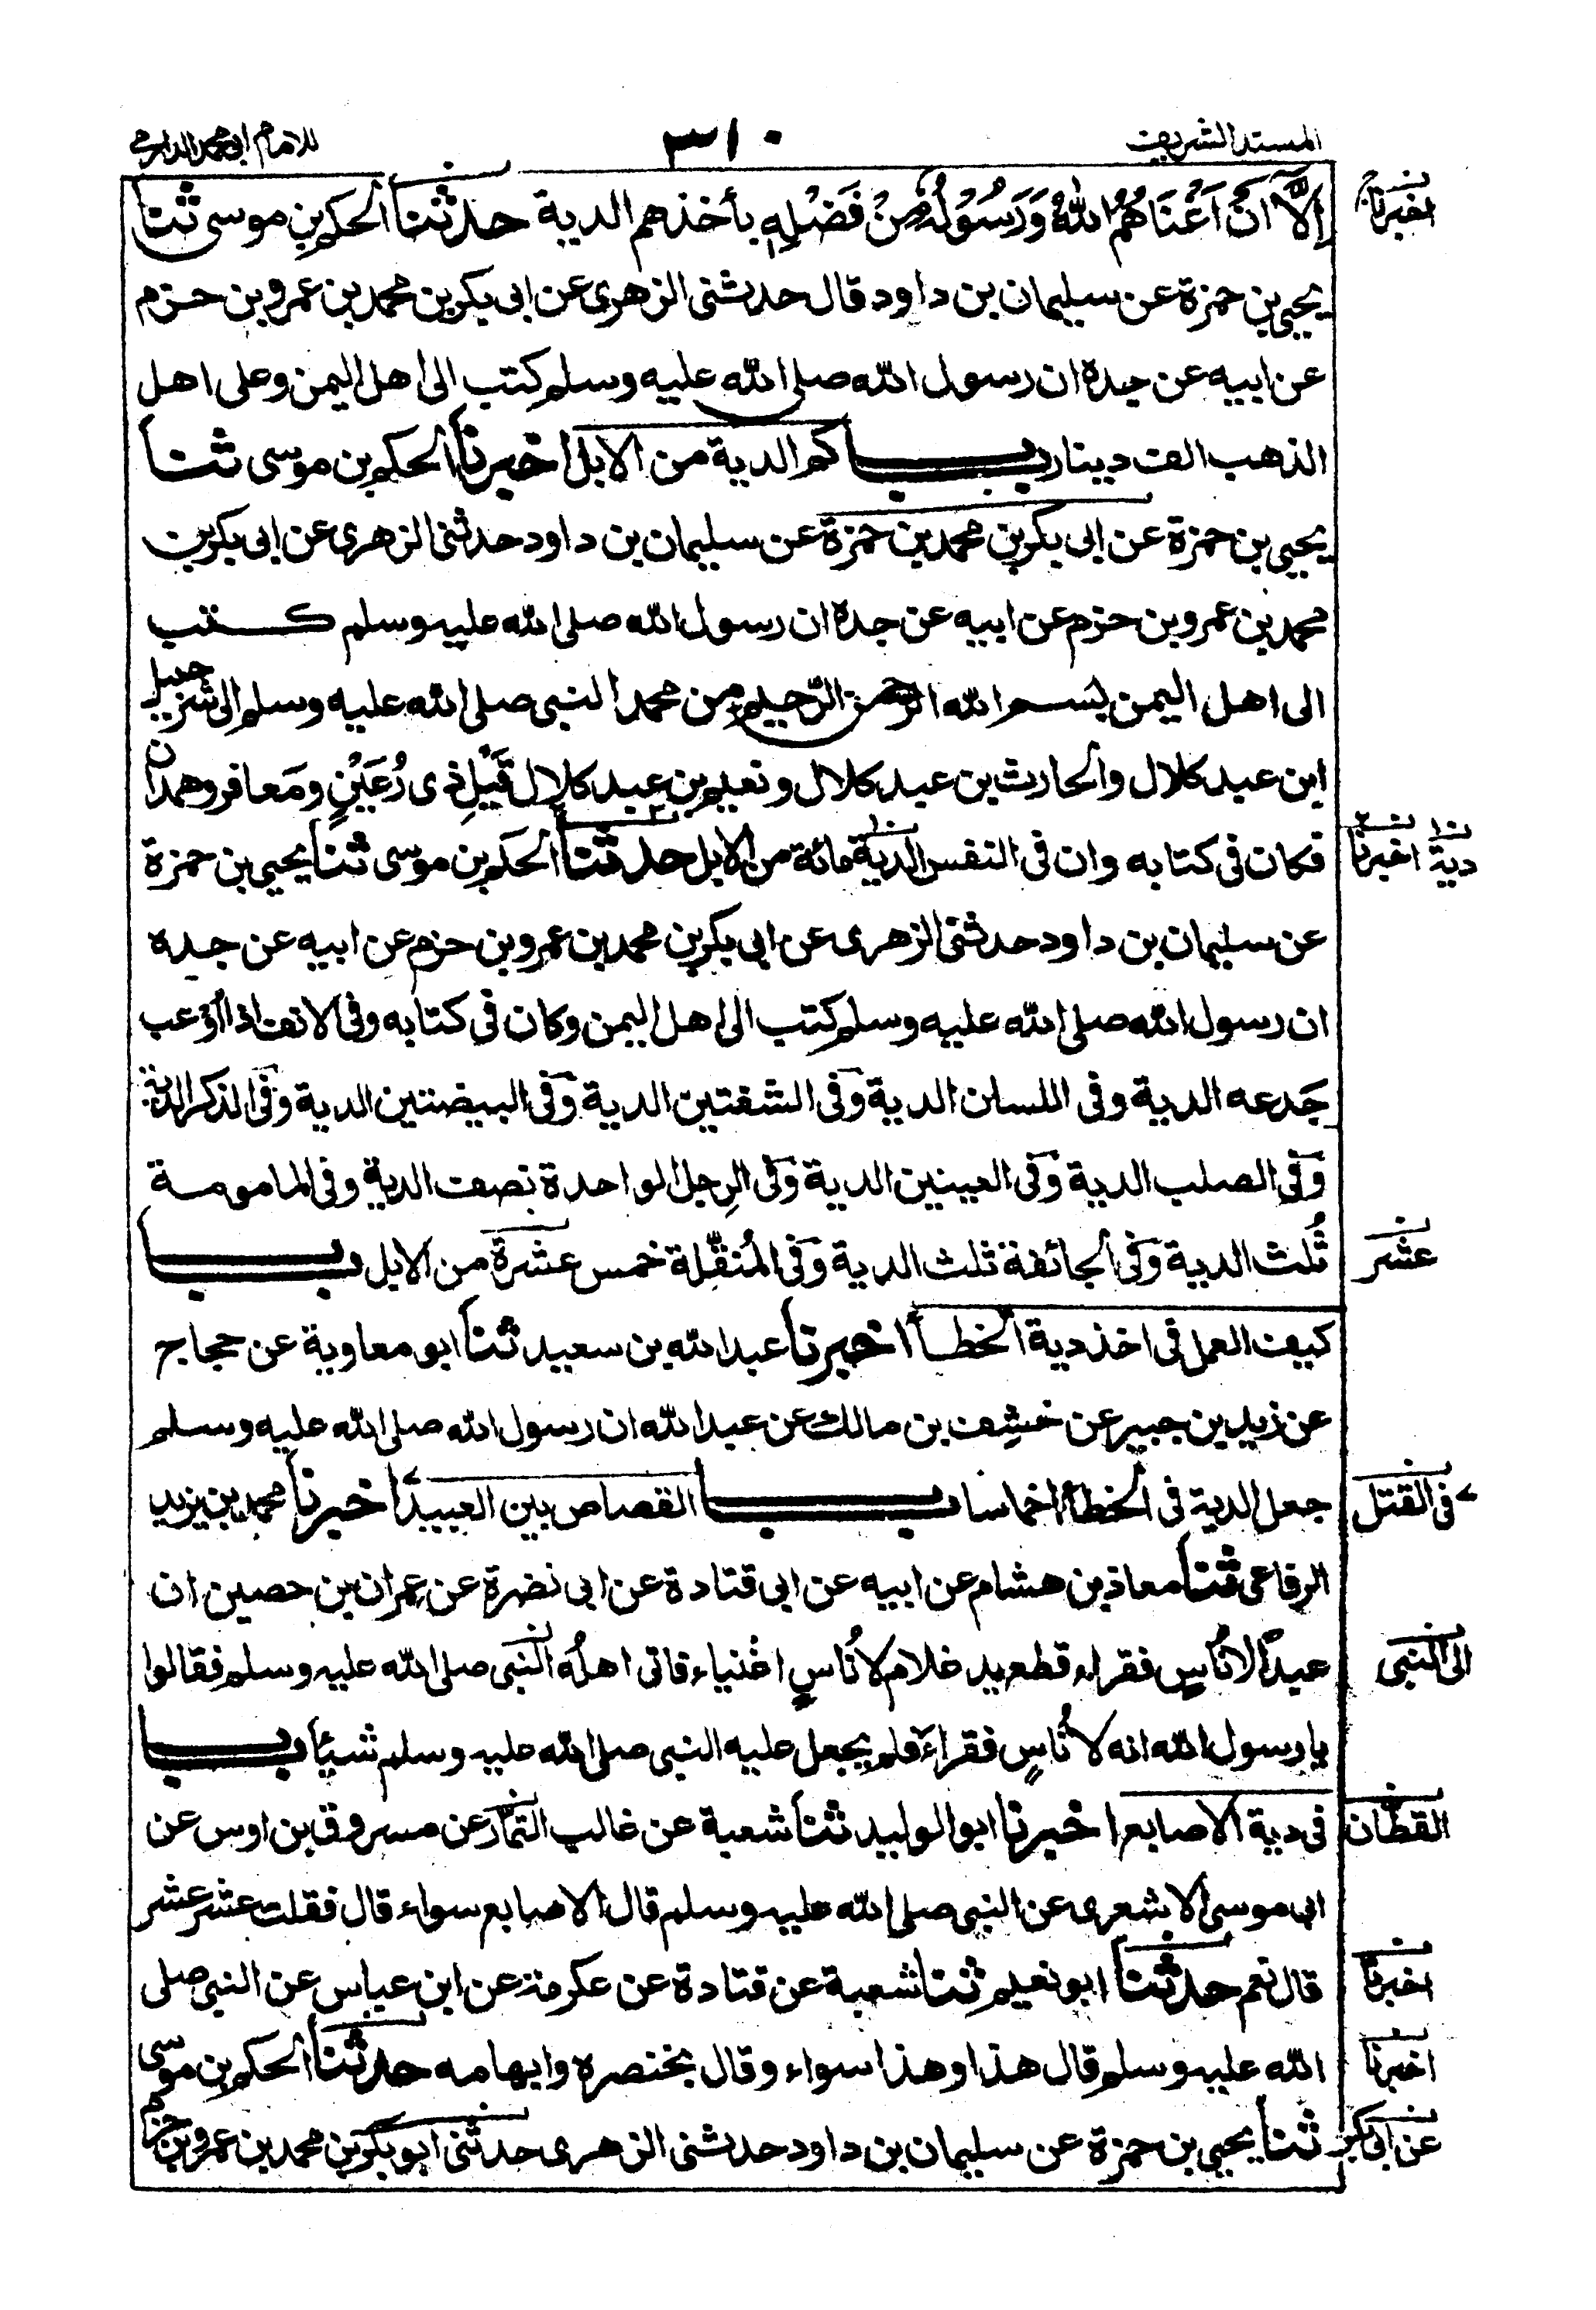 المسند الشريف
٣١٠
للامام ابي محمد الدارمي
اِلَّا اَنْ اَغْنَاهُمُ اللهُ وَرَسُوْلُهٗ مِنْ فَضْلِهٖ بأخذهم الدية حدثنا الحكم بن موسى ثنا
اخبرنا
يحيى بن حمزة عن سليمان بن داود قال حدثنى الزهرى عن ابى بكر بن محمد بن عمرو بن حزم
عن ابيه عن جده ان رسول الله صلى الله عليه وسلم كتب الى اهل اليمن وعلى اهل
الذهب الف دينار باب كم الدية من الابل اخبرنا الحكم بن موسى ثنا
يحيى بن حمزة عن ابى بكر بن محمد بن حمزة عن سليمان بن داود حدثنى الزهرى عن ابى بكر بن
محمد بن عمرو بن حزم عن ابيه عن جده ان رسول الله صلى الله عليه وسلم كتب
الى اهل اليمن بسم الله الرحمن الرّحيم من محمد النبى صلى الله عليه وسلم الى شرحبيل
ابن عبد كلال والحارث بن عبد كلال ونعيم بن عبد كلال قَيْلِ ذى رُعَيْنٍ ومَعافر وهمدان
فكان فى كتابه وان فى النفس الدية مائة من الابل حدثنا الحكم بن موسى ثنا يحيى بن حمزة
اخبرنا دية
عن سليمان بن داود حدثنى الزهرى عن ابى بكر بن محمد بن عمرو بن حزم عن ابيه عن جده
ان رسول الله صلى الله عليه وسلم كتب الى اهل اليمن وكان فى كتابه وفى الانف اذا اُوْعب
جَدعه الدية وفى اللسان الدية وَفى الشفتين الدية وَفى البيضتين الدية وَفى الذكر الدية
وَفى الصلب الدية وَفى العينين الدية وَفى الرِجل الواحدة نصف الدية وفى المامومة
ثُلث الدية وَفى الجائفة ثلث الدية وَفى المُنقِّلة خمس عشرة من الابل باب
عشر
كيف العمل فى اخذ دية الخطأ اخبرنا عبد الله بن سعيد ثنا ابو معاوية عن حجاج
عن زيد بن جبير عن خشِف بن مالك عن عبد الله ان رسول الله صلى الله عليه وسلم
جعل الدية فى الخطأ اخماسا باب القصاص بين العبيد اخبرنا محمد بن يزيد
فى القتل
الرفاعى ثنا معاذ بن هشام عن ابيه عن ابى قتادة عن ابى نضرة عن عِمران بن حصين ان
عبدًا لاُناسٍ فقراء قطع يد غلام لاُناسٍ اغنياء فاتى اهلُه النبى صلى الله عليه وسلم فقالوا
الى النبى
يا رسول الله انه لاُناسٍ فقراءَ فلم يجعل عليه النبى صلى الله عليه وسلم شيئاً باب
فى دية الاصابع اخبرنا ابو الوليد ثنا شعبة عن غالب التمّار عن مسروق بن اوس عن
القطّان
ابى موسى الاشعرى عن النبى صلى الله عليه وسلم قال الاصابع سواء قال فقلت عشر عشر
قال نعم حدثنا ابو نعيم ثنا شعبة عن قتادة عن عكرمة عن ابن عباس عن النبى صلى
اخبرنا
الله عليه وسلم قال هذا وهذا سواء وقال بخنصره وابهامه حدثنا الحكم بن موسى
اخبرنا
ثنا يحيى بن حمزة عن سليمان بن داود حدثنى الزهرى حدثنى ابو بكر بن محمد بن عمرو بن حزم
عن ابى بكر